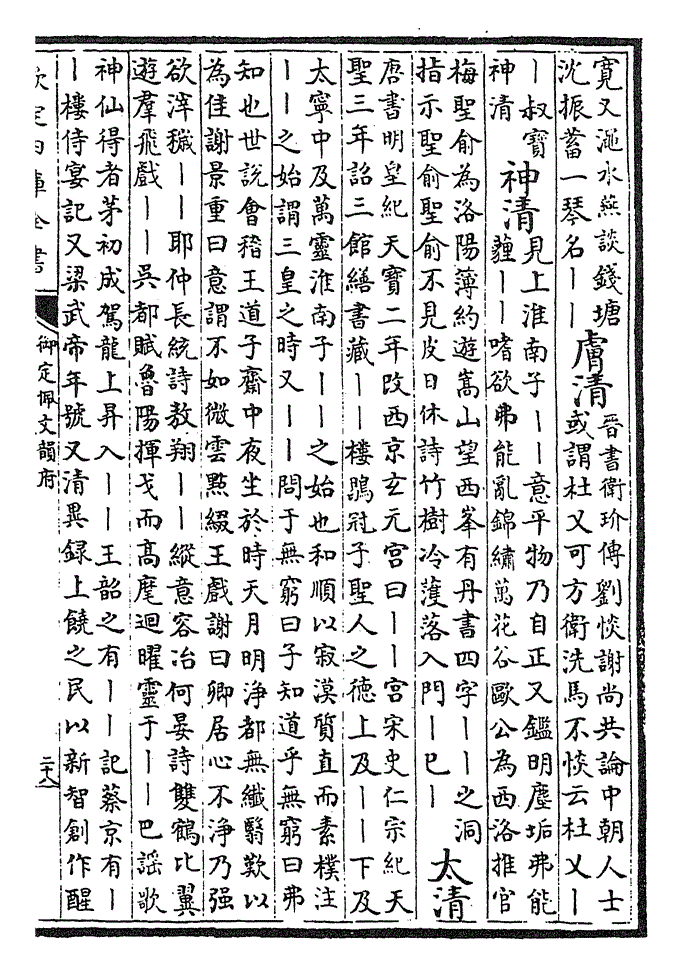 寛又澠水燕談錢塘
沈振蓄一琴名｜｜
膚清
晉書衛玠傳劉惔謝尚共論中朝人士
或謂杜乂可方衛洗馬不惔云杜乂｜
｜叔寶
神清
神清
見上淮南子｜｜意平物乃自正又鑑明塵垢弗能
貍｜｜嗜欲弗能亂錦繡萬花谷歐公為西洛推官
梅聖俞為洛陽簿約遊嵩山望西峯有丹書四字｜｜之洞
指示聖俞聖俞不見皮日休詩竹樹冷濩落入門｜已｜
太清
唐書明皇紀天寶二年改西京玄元宮曰｜｜宮宋史仁宗紀天
聖三年詔三館繕書藏｜｜樓鶡冠子聖人之德上及｜｜下及
太寧中及萬靈淮南子｜｜之始也和順以寂漠質直而素樸注
｜｜之始謂三皇之時又｜｜問于無窮曰子知道乎無窮曰弗
知也世說會稽王道子齋中夜坐於時天月明淨都無纖翳歎以
為佳謝景重曰意謂不如微雲點綴王戲謝曰卿居心不淨乃强
欲滓穢｜｜耶仲長統詩敖翔｜｜縱意容冶何晏詩雙鶴比翼
遊羣飛戲｜｜吳都賦魯陽揮戈而高麾迴曜靈于｜｜巴謡歌
神仙得者茅初成駕龍上昇入｜｜王韶之有｜｜記蔡京有｜
｜樓侍宴記又梁武帝年號又清異録上饒之民以新智創作醒
欽定四庫全書
御定佩文韻府
二十八